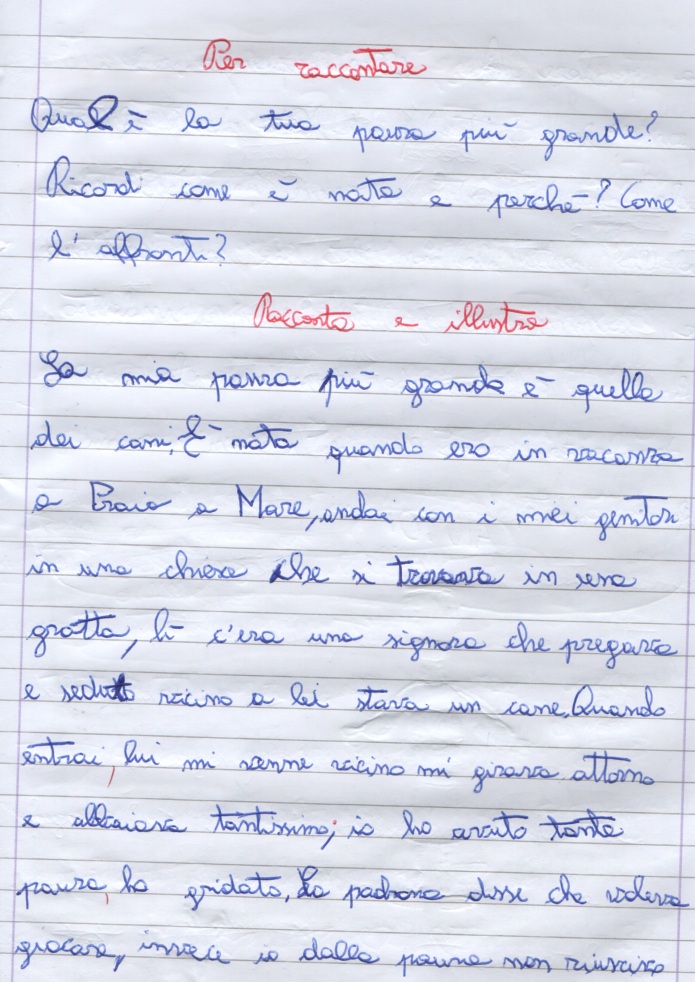 Per raccontare
Qual è la tua paura più grande?
Ricordi come è nata e perché? Come
l'affronti?
Racconta e illustra
La mia paura più grande è quella
dei cani. È nata quando ero in vacanza
a Praia a Mare, andai con i miei genitori
in una chiesa che si trovava in una
grotta, lì c'era una signora che pregava
e seduto vicino a lei stava un cane. Quando
entrai, lui mi venne vicino mi girava attorno
e abbaiava tantissimo; io ho avuto tanta
paura, ho gridato. La padrona disse che voleva
giocare, invece io dalla paura non riuscivo